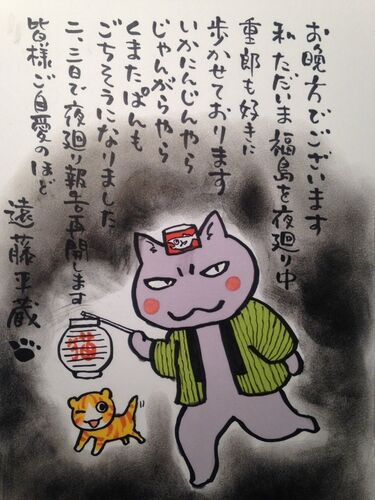 お晩方でございます
私ただいま福島を夜廻り中
重郎も好きに
歩かせております
いかにんじんやら
じゃんがらやら
くまたぱんも
ごちそうになりました
二、三日で夜廻り報告再開します
皆様ご自愛のほど
遠藤平蔵
猫